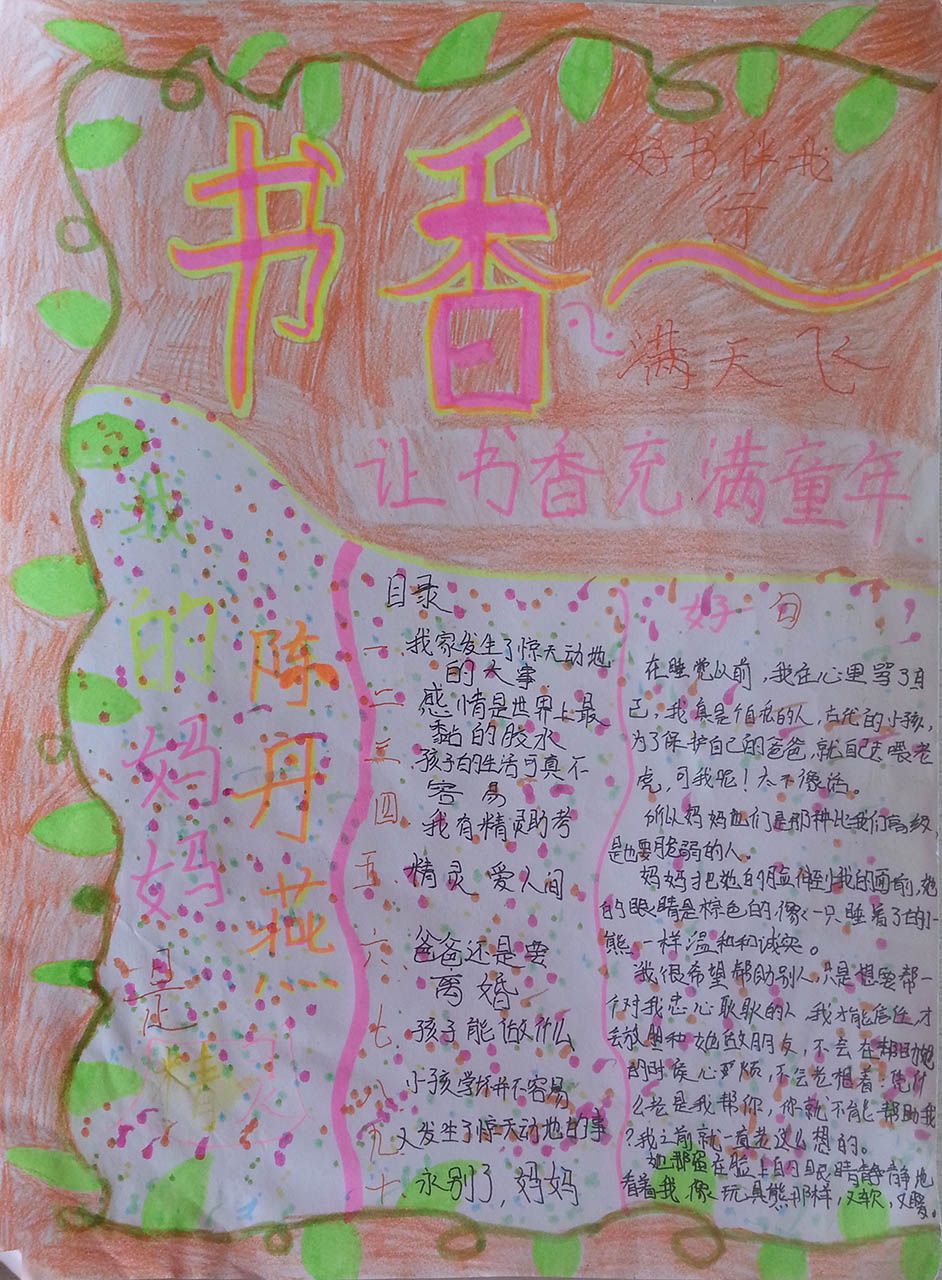 书香
好书伴我
行
满天飞
让书香充满童年
我的妈妈是精灵
陈丹燕
目录
一 我家发生了惊天动地
的大事
二 感情是世界上最
黏的胶水
三 孩子的生活可真不
容易
四 我有精灵助考
五 精灵爱人间
六 爸爸还是要
离婚
七 孩子能做什么
八 小孩学坏并不容易
九 又发生了惊天动地的事
十 永别了,妈妈
好句
在睡觉以前,我在心里骂了自
己,我真是个自私的人,古代的小孩,
为了保护自己的爸爸,就自己去喂老
虎,可我呢!太不像话。
所以妈妈他们是那种比我们高级,
是也要脆弱的人。
妈妈把她的脸伸到我的面前,她
的眼睛是棕色的,像一只睡着了的小
熊一样温和和诚实。
我很希望帮助别人,只是想要帮一
个对我忠心耿耿的人,我才能信任,才
去放里和她做朋友,不会在帮助她
的时候心里烦,不会老想着:凭什
么老是我帮你,你就不能帮助我
?我之前就一直是这么想的。
她那蛋在脸上的眼睛静静地
看着我,像玩具熊那样,又软,又暖。